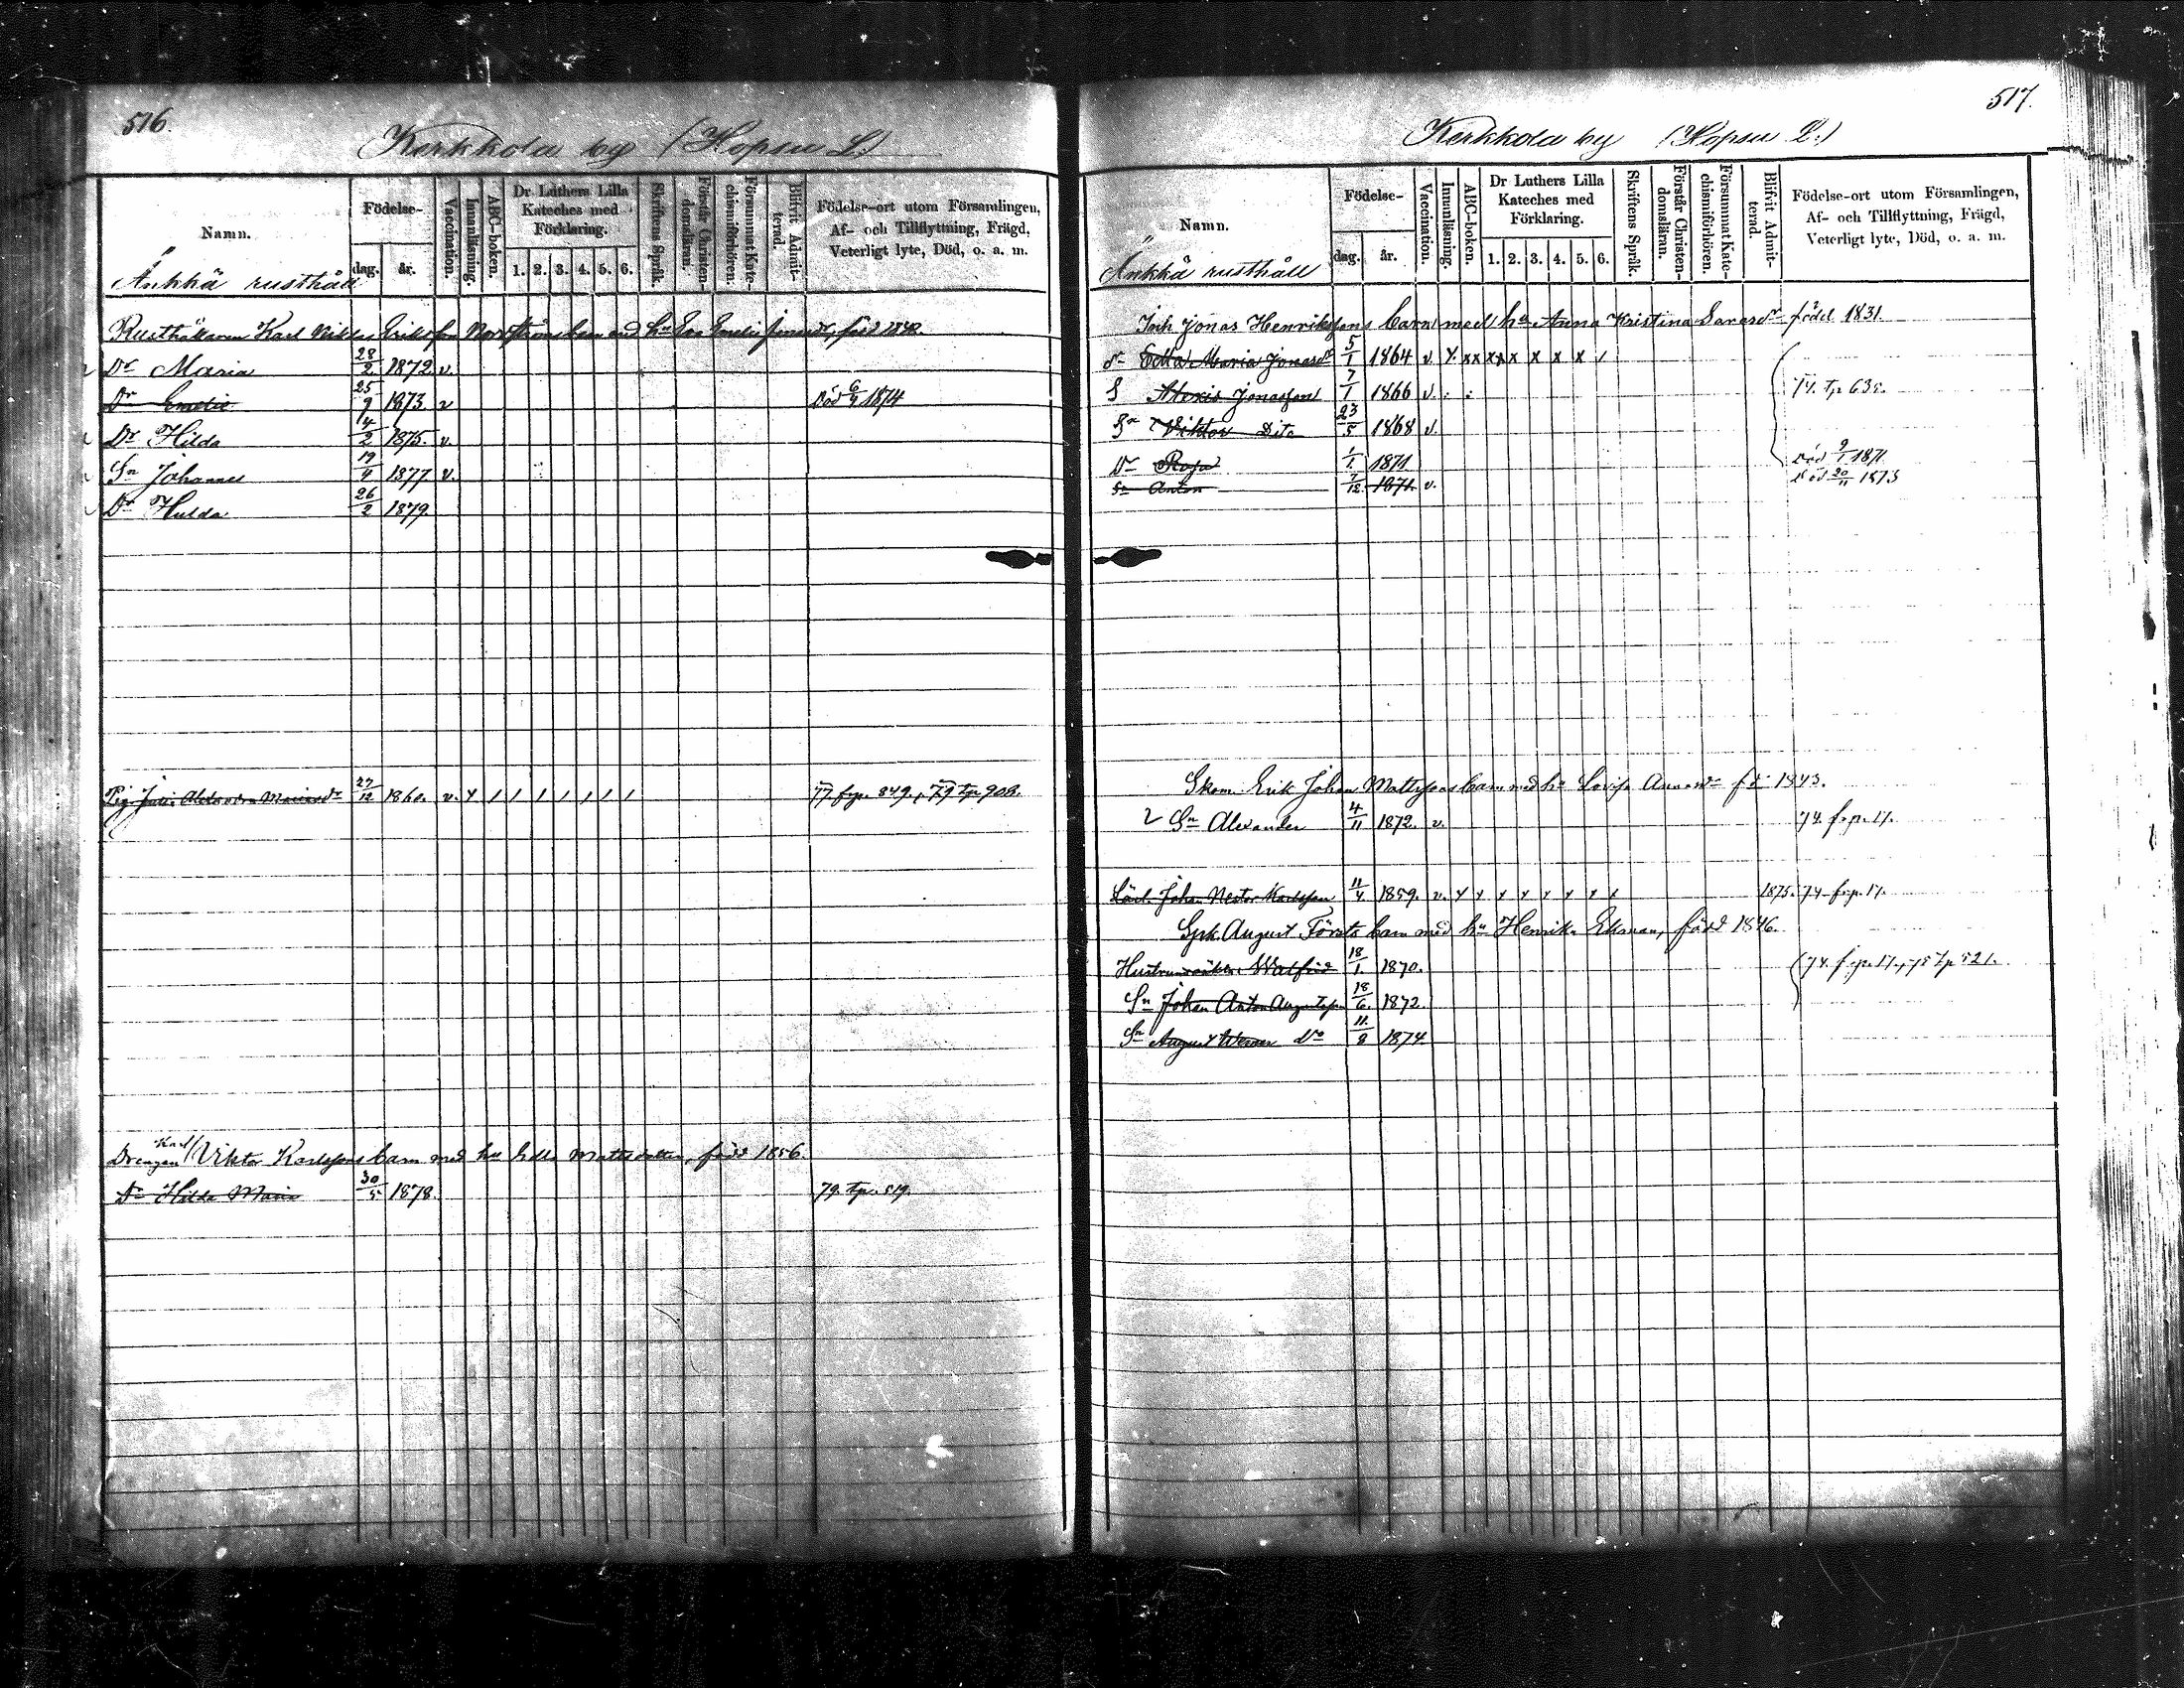 516.
Kerkkola by (Hopsu L.)
Namn.
Födelse-
dag. år.
Vaccination.
Innanläsning.
ABC-boken.
Dr Luthers Lilla Kateches med Förklaring.
1. 2. 3. 4. 5. 6.
Skriftens Språk.
Förstår Christendomsläran.
Försummat Katechismiförhören.
Blifvit Admitterad.
Födelse-ort utom Församlingen,
Af- och Tillflyttning, Frägd,
Veterligt lyte, Död, o. a. m.
Änkkä rusthåll
Rusthållaren Karl Niklas Eriksson Nordströms barn med hu Eva Emelie född 1848.
Dr Maria 28/2 1872 v.
Dr Emelie 25/9 1873. v Död 6/4 1874
Dr Hilda 14/2 1875. v.
Sn Johannes 19/4 1877 v.
Dr Hulda 26/2 1879.
Pig. Alexandra Mariasdr 27/12 1860. v. x / / / / / / / 77 frp 849, 79 tp 908.
Drengen Karl Viktor Karlssons barn med hu Mattsdotter, född 1856.
Dr Hilda Maria 30/5 1878. 79. tp. 519.
517.
Kerkkola by (Hopsu L.)
Namn.
Födelse-
dag. år.
Vaccination.
Innanläsning.
ABC-boken.
Dr Luthers Lilla Kateches med Förklaring.
1. 2. 3. 4. 5. 6.
Skriftens Språk.
Förstår Christendomsläran.
Försummat Katechismiförhören.
Blifvit Admitterad.
Födelse-ort utom Församlingen,
Af- och Tillflyttning, Frägd,
Veterligt lyte, Död, o. a. m.
Änkkä rusthåll
Inh Jonas Henrikssons barn med hu Anna Kristina född 1831.
dr Edla Maria Jonasdr 5/1 1864 v. x xx xx x x x x /
S Alexis Jonasson 7/1 1866 v. : : 74. tp 635.
Sn Viktor Dito 23/5 1868 v.
Dr Rosa 1/1. 1871 Död 9/1 1871.
Sn Anton 7/12 1871. v. Död 20/11 1873
Skom. Erik Johan Mattssons barn med hu Lovisa Annasdr föd 1843.
Sn Alexander 4/11 1872. v. 74. frp. 17.
Lärl. Johan Nestor Karlsson 11/4 1859. v. x x x x x x x x 1875. 74 frp. 17.
Spk. August Försts barn med hu Henrika Ekman, född 1846.
Hustruns Walfrid 18/1. 1870. 74. frp. 17., 75 tp 521.
Sn Johan Anton Augustsson 18/6. 1872.
Sn August Werner Do 11./8 1874